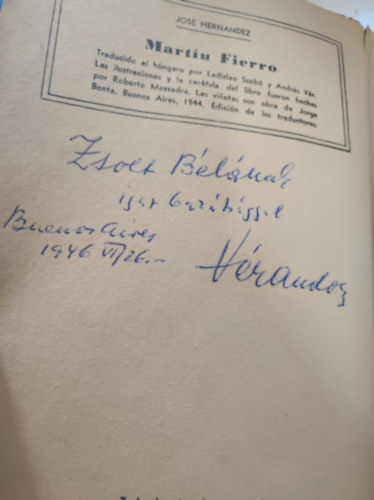 JOSE HERNANDEZ
Martín Fierro
Traducido al húngaro por Ladislao Szabó y Andrés Vér.
Las ilustraciones y la carátula del libro fueron hechas
por Roberto Mezzadra. Las viñetas son obra de Jorge
Bonta. Buenos Aires, 1944. Edición de los traductores.
Zsolt Bélának
igaz barátsággal
Buenos Aires
1946 VI/26.-
Vérandor